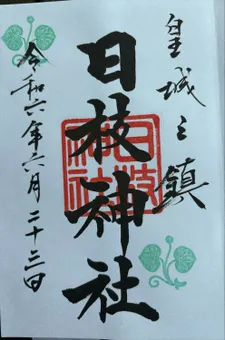 皇城之鎮
日枝神社
日枝神社
令和六年六月二十三日